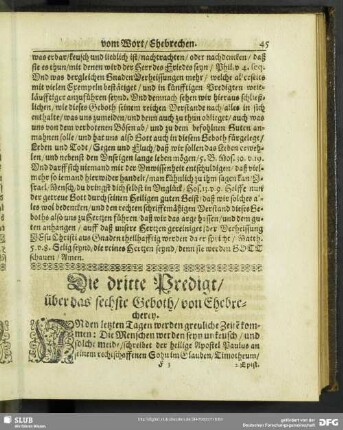 vom Wort / Ehebrechen. 45
was erbar / keusch und lieblich ist / nachtrachten / oder nachdencken / daß
sie es thun / mit denen wird der Herr des Friedes seyn / Phil. v 4. seq.
Und was dergleichen Gnaden Verheissungen mehr / welche allerseits
mit vielen Exempeln bestätiget / und in künfftigen Predigten weit-
läufftiger anzuführen seynd. Und dennoch sehen wir hieraus schließ-
lichen / wie dieses Geboth seinem rechten Verstand nach alles in sich
enthalte / was uns zumelden / und denn auch zu thun oblieget; auch was
uns von dem verbotenen Bösen ab / und zu dem befohlnen Guten an-
mahnen solle / und hat uns also Gott auch in diesem Geboth fürgelegt /
Leben und Tod / Segen und Fluch / daß wir sollen das Leben erweh-
len / und nebenst den Unsrigen lange leben mögen / 5. B. Mos. 30. v. 19.
Und darff sich niemand mit der Unwissenheit entschuldigen / daß viel-
mehr so jemand hierwider handelt / man
der getreue Gott durch seinen Heiligen Guten Geist / daß wir solches al-
les wol bedencken / und den rechten schrifftmäßigen Verstand dieses Ge-
boths also uns zu Hertzen führen / daß wir das arge hassen / und dem gu-
ten anhangen / auff daß unsere Hertzen gereiniget / der Verheissung
JEsu Christi aus Gnaden theilhafftig werden da er spricht / Matth.
5. v. 8. Selig seynd / die reines Hertzen seynd / denn sie werden GOTT
schauen / Amen.
Die dritte Predigt /
über das sechste Geboth / von Ehebre-
cherey.
IN den letzten Tagen werden greuliche Zeiten kom-
men: Die Menschen werden seyn unkeusch / und
wild / schreibet der heilige Apostel Paulus an
seinem rechtschaffenen Sohn im Glauben / Timotheum /
2. Epist.
SLUB
Wir führen Wissen.
gefördert von der
DFG Deutsche Forschungsgemeinschaft